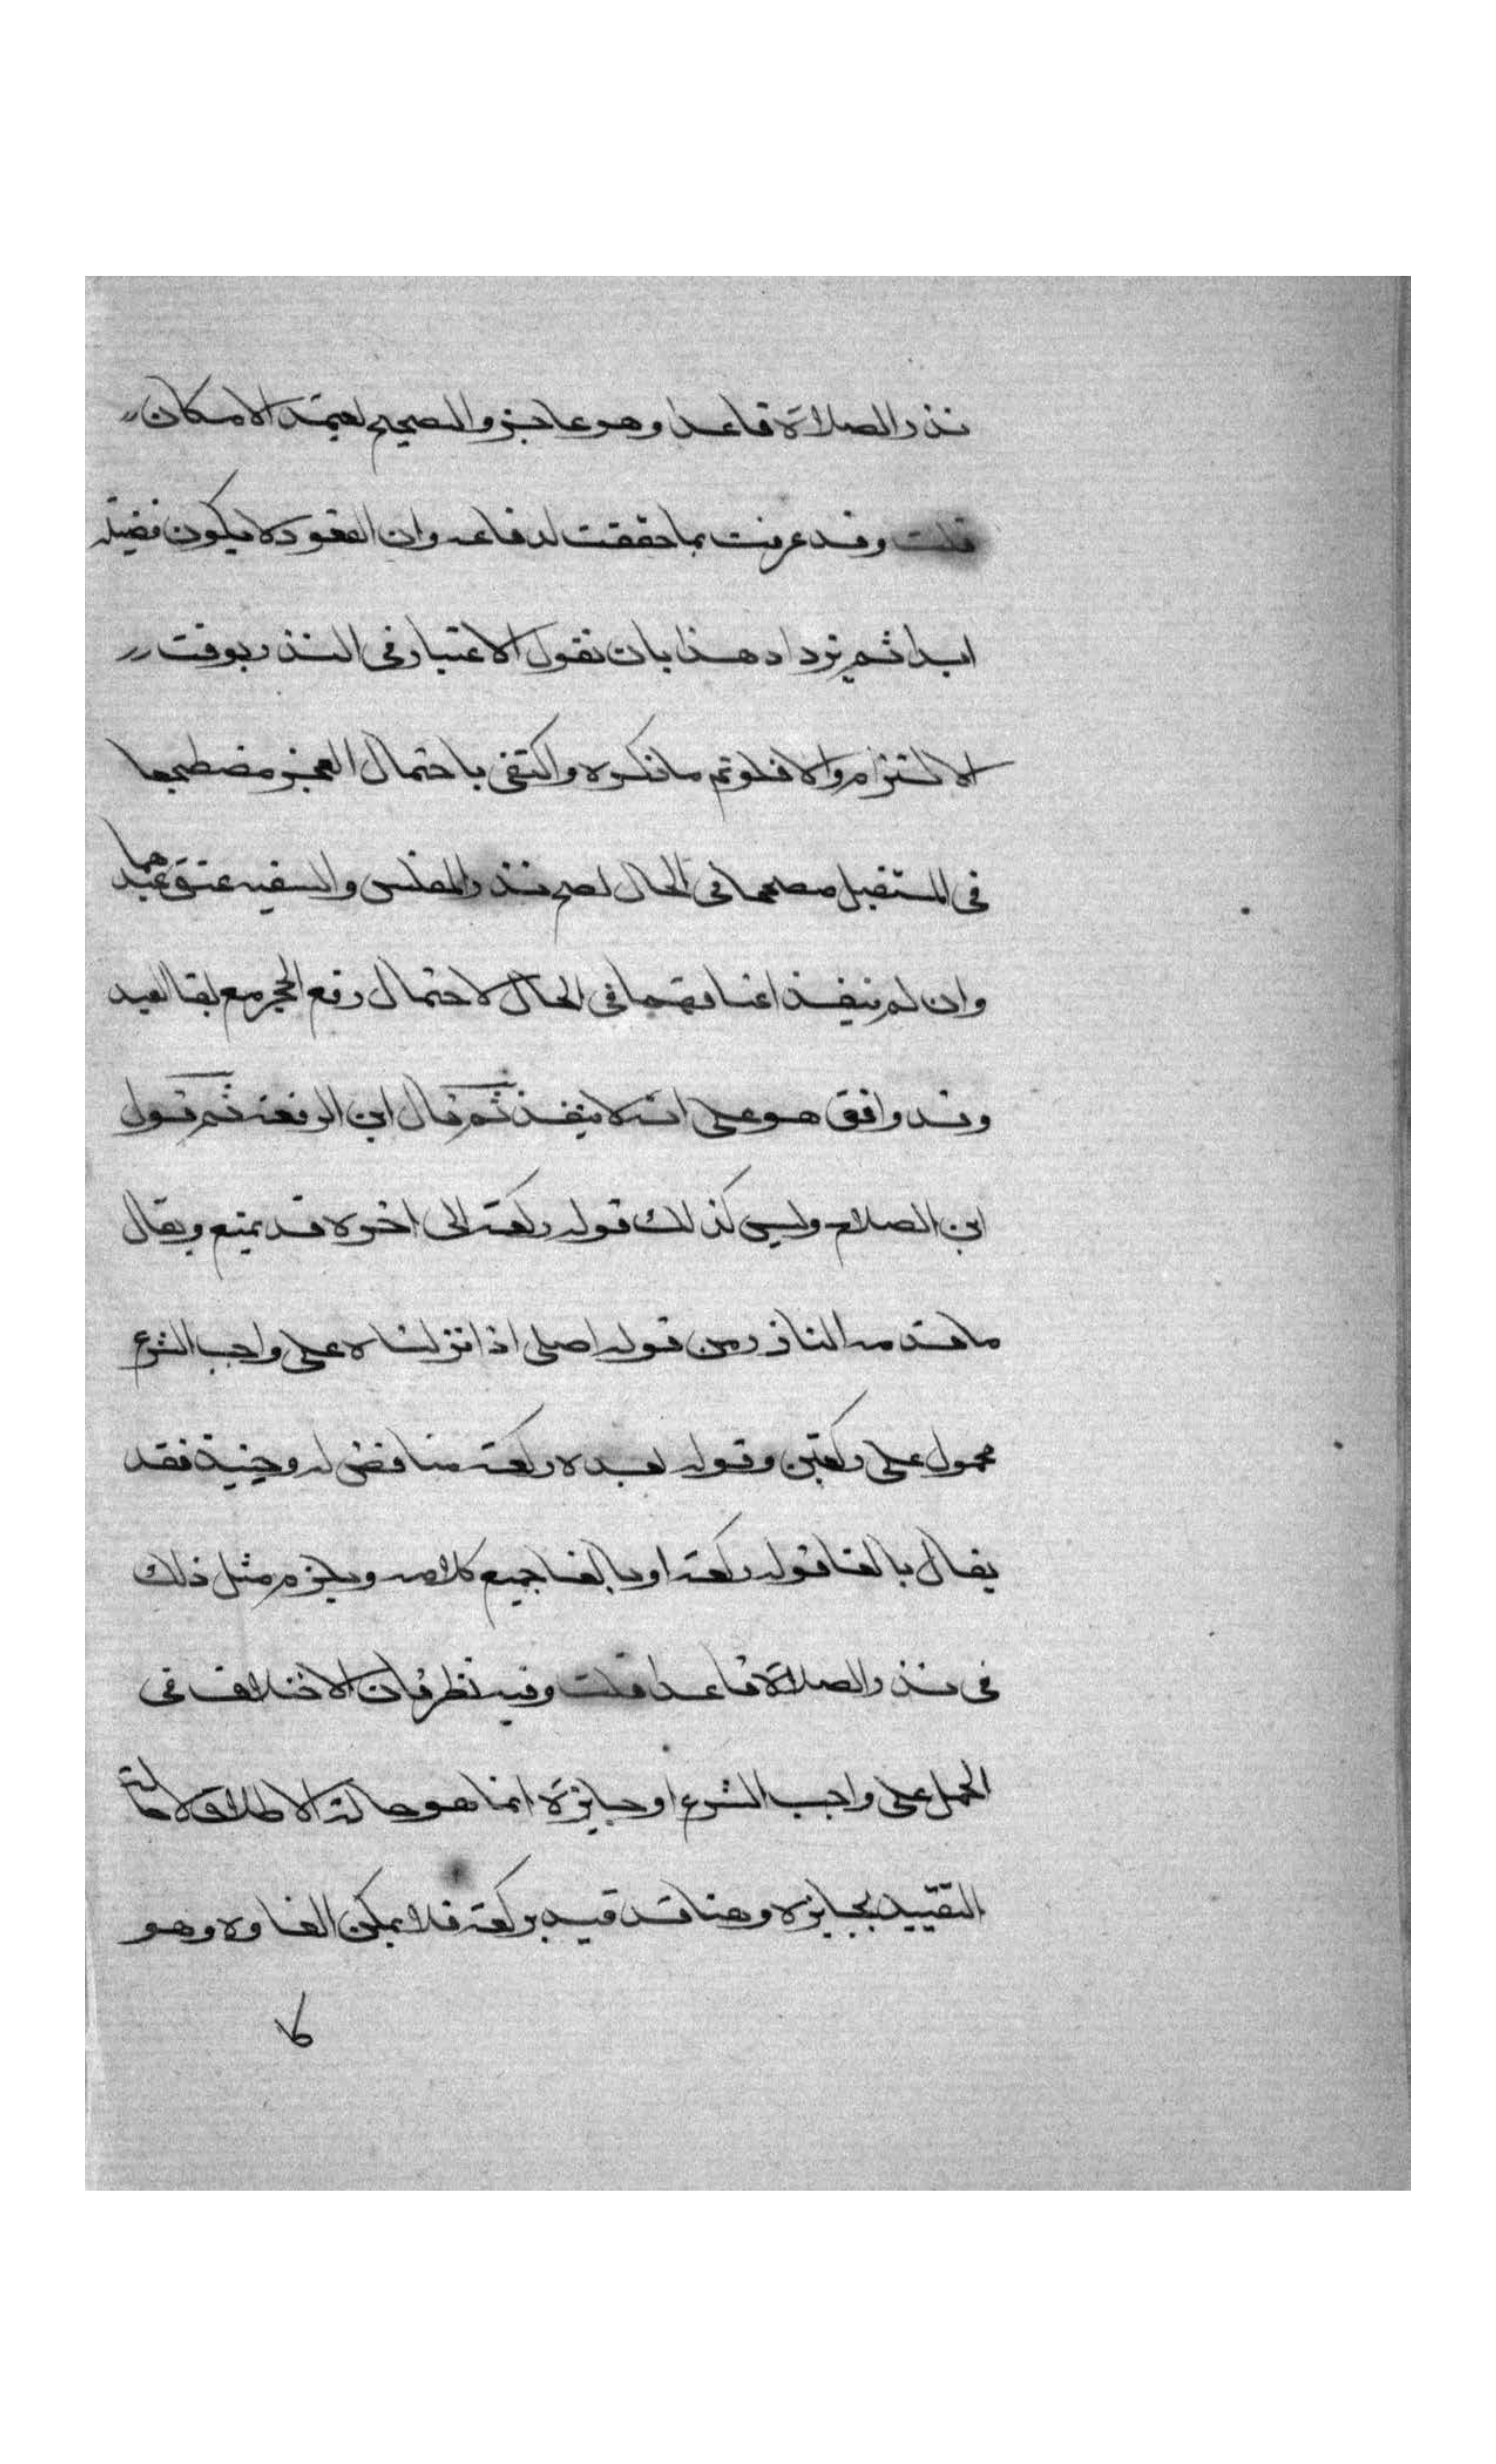 نذر الصلاة قاعدا وهو عاجز والصحيح يعتمد الامكان
قلت وقد عرفت بما حققت اندفاعه وان القعود لا يكون فضيلة
ابدا ثم نزداد هذا بان نقول الاعتبار في النذر بوقت
الالتزام والا فلو تم ما ذكره واكتفى باحتمال العجز مضطجعا
في المستقبل مصححا في الحال لصح نذر المفلس والسفيه عتق عبدهما
وان لم ينفذ اعتاقهما في الحال لاحتمال رفع الحجر مع بقا العبد
وقد وافق هو على انه لا ينفذ ثم قال ابن الرفعة ثم قول
ابن الصلاح وليس كذلك قوله ركعة الى اخره قد يمنع ويقال
ما قدمه الناذر من قوله اصلي اذا نزلناه على واجب الشرع
محمول على ركعتين وقوله بعده ركعة مناقض له وحينيذ فقد
يقال بالغا قوله ركعة او بالغا جميع كلامه ويلزم مثل ذلك
في نذر الصلاة قاعدا قلت وفيه نظر فان الاختلاف في
الحمل على واجب الشرع او جايزه انما هو حالة الاطلاق لا حالة
التقييد بجايزه وهنا قد قيد بركعة فلا يمكن الغاوه وهو